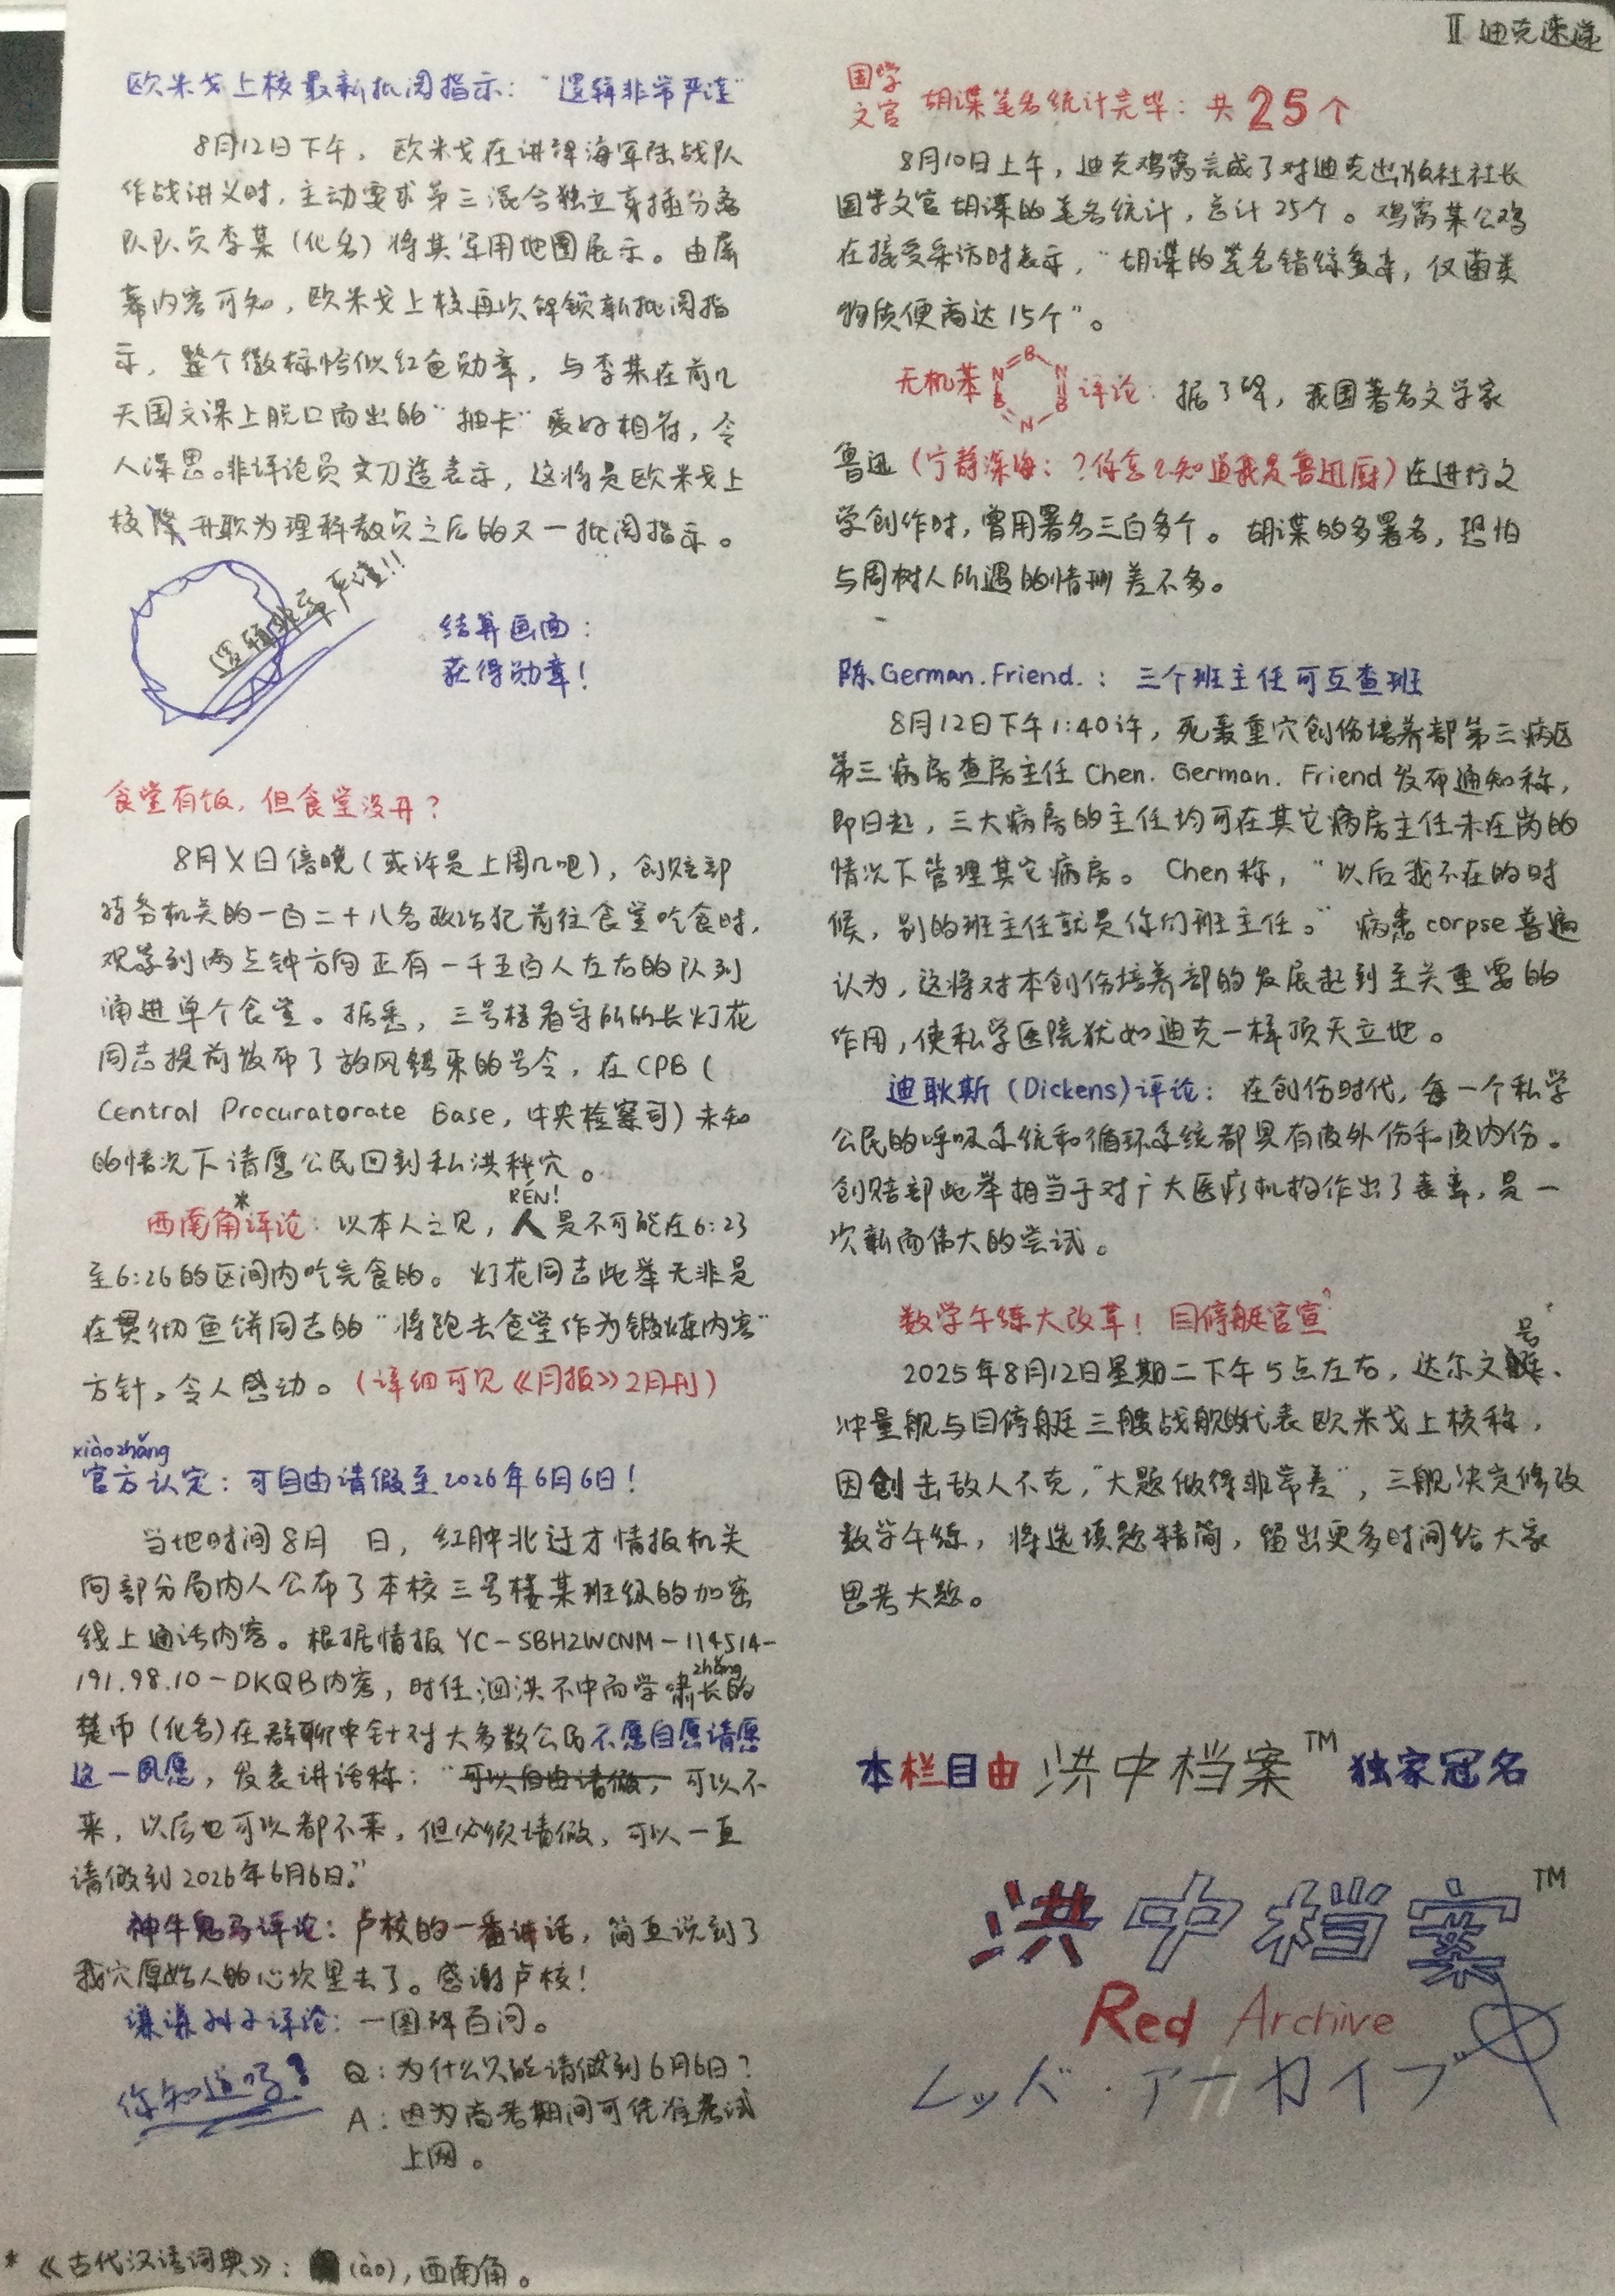 II 迪克速递
欧米戈上校最新批阅指示：“逻辑非常严谨”
8月12日下午，欧米戈在讲解海军陆战队
作战讲义时，主动要求第三混合独立穿插分离
队队员李某（化名）将其军用地图展示。由屏
幕内容可知，欧米戈上校再次解锁新批阅指
示，整个徽标恰似红色勋章，与李某在前几
天国文课上脱口而出的“抽卡”爱好相符，令
人深思。非评论员文刀造表示，这将是欧米戈上
校升职为理科教员之后的又一批阅指示。
逻辑非常严谨!!
结算画面：
获得勋章！
食堂有饭，但食堂没开？
8月X日傍晚（或许是上周几吧），创赔部
特务机关的一百二十八名政治犯前往食堂吃食时，
观察到两点钟方向正有一千五百人左右的队列
涌进单个食堂。据悉，三号楼看守所的长灯花
同志提前发布了放风结束的号令，在CPB（
Central Procuratorate Base，中央检察司）未知
的情况下请愿公民回到私洪种穴。
RÉN!
西南角*评论：以本人之见，人是不可能在6:23
至6:26的区间内吃完食的。灯花同志此举无非是
在贯彻鱼饼同志的“将跑去食堂作为锻炼内容”
方针。令人感动。（详细可见《月报》2月刊）
xiàozhǎng
官方认定：可自由请假至2026年6月6日！
当地时间8月 日，红肿北迁才情报机关
向部分局内人公布了本校三号楼某班级的加密
线上通话内容。根据情报YC-SBHZWCNM-114514-
191.98.10-DKQB内容，时任泗洪不中而学啸长的
zhǎng
楚币（化名）在群聊中针对大多数公民不愿自愿请愿
这一夙愿，发表讲话称：“可以自由请假，可以不
来，以后也可以都不来，但必须请假，可以一直
请假到2026年6月6日。”
神牛鬼马评论：卢校的一番讲话，简直说到了
我穴原始人的心坎里去了。感谢卢校！
谋谋孙子评论：一图解百问。
你知道吗？
Q：为什么只能请假到6月6日？
A：因为高考期间可凭准考证
上网。
*《古代汉语词典》：(ào)，西南角。
国学
文官 胡谋笔名统计完毕：共25个
8月10日上午，迪克鸡窝完成了对迪克出版社社长
国学文官胡谋的笔名统计，总计25个。鸡窝某公鸡
在接受采访时表示，“胡谋的笔名错综复杂，仅菌类
物质便高达15个”。
无机苯 B N B N B N 评论：据了解，我国著名文学家
鲁迅（宁静深海：？你怎么知道我是鲁迅厨）在进行文
学创作时，曾用署名三百多个。胡谋的多署名，恐怕
与周树人所遇的情形差不多。
陈German.Friend.：三个班主任可互查班
8月12日下午1:40许，死轰重穴创伤培养部第三病区
第三病房查房主任Chen. German. Friend发布通知称，
即日起，三大病房的主任均可在其它病房主任未在岗的
情况下管理其它病房。Chen称，“以后我不在的时
候，别的班主任就是你们班主任。”病患corpse普遍
认为，这将对本创伤培养部的发展起到至关重要的
作用，使私学医院犹如迪克一样顶天立地。
迪耿斯（Dickens)评论：在创伤时代，每一个私学
公民的呼吸系统和循环系统都具有皮外伤和皮内伤。
创赔部此举相当于对广大医疗机构作出了表率，是一
次新而伟大的尝试。
数学午练大改革！目停艇官宣
2025年8月12日星期二下午5点左右，达尔文号、
冲量舰与目停艇三艘战舰的代表欧米戈上校称，
因创击敌人不克，“大题做得非常差”，三舰决定修改
数学午练，将选填题精简，留出更多时间给大家
思考大题。
本栏目由洪中档案TM独家冠名
洪中档案TM
Red Archive
レッド・アーカイブ